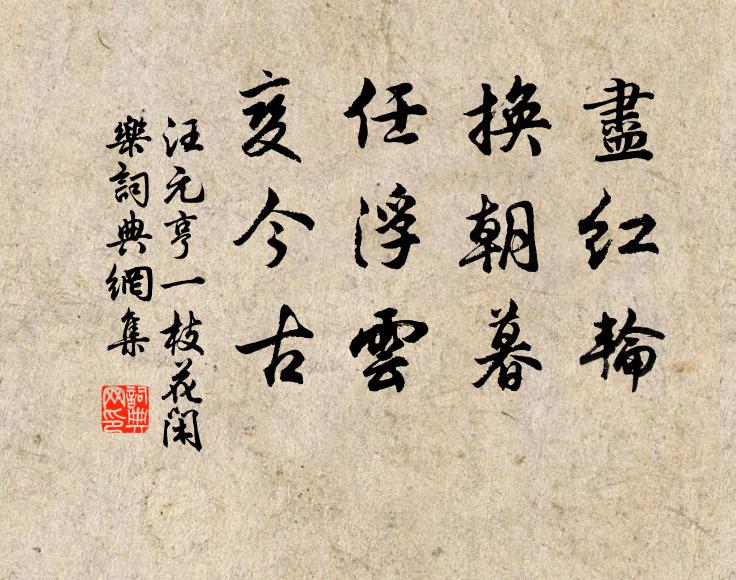 盡紅輪
換朝暮
任浮雲
变今古
汪元亨一枝花闲
樂詞典網集
詞典网印